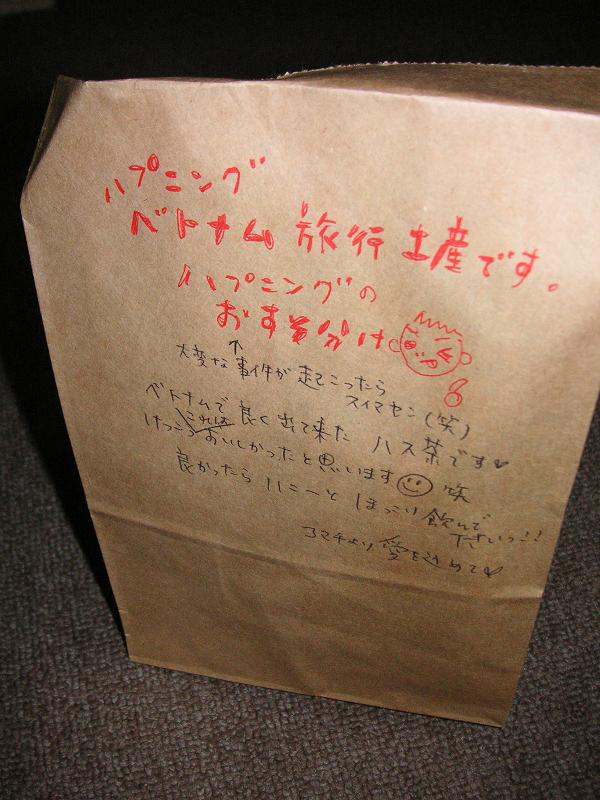 ハプニング
ベトナム 旅行 土産です。
ハプニングの
おすそ分け
↑
大変な事件が起こったら
スイマセン(笑)
ベトナムで 良く出て来た ハス茶です♥
けっこうおいしかったと思います☺ 笑
良かったら ハニーと ほっこり 飲んで
下さいっ!!
コマチより 愛を込めて♥